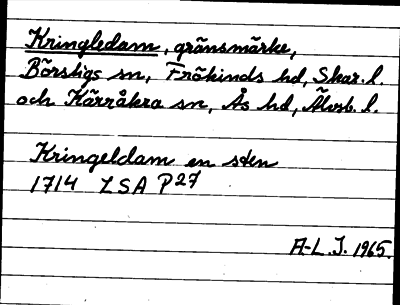 Kringledam, gränsmärke,
Börstigs sn, Frökinds hd, Skar. l.
och Kärråkra sn, Ås hd, Älvsb. l.
Kringeldam en sten
1714 LSA P27
A-L. J. 1965.